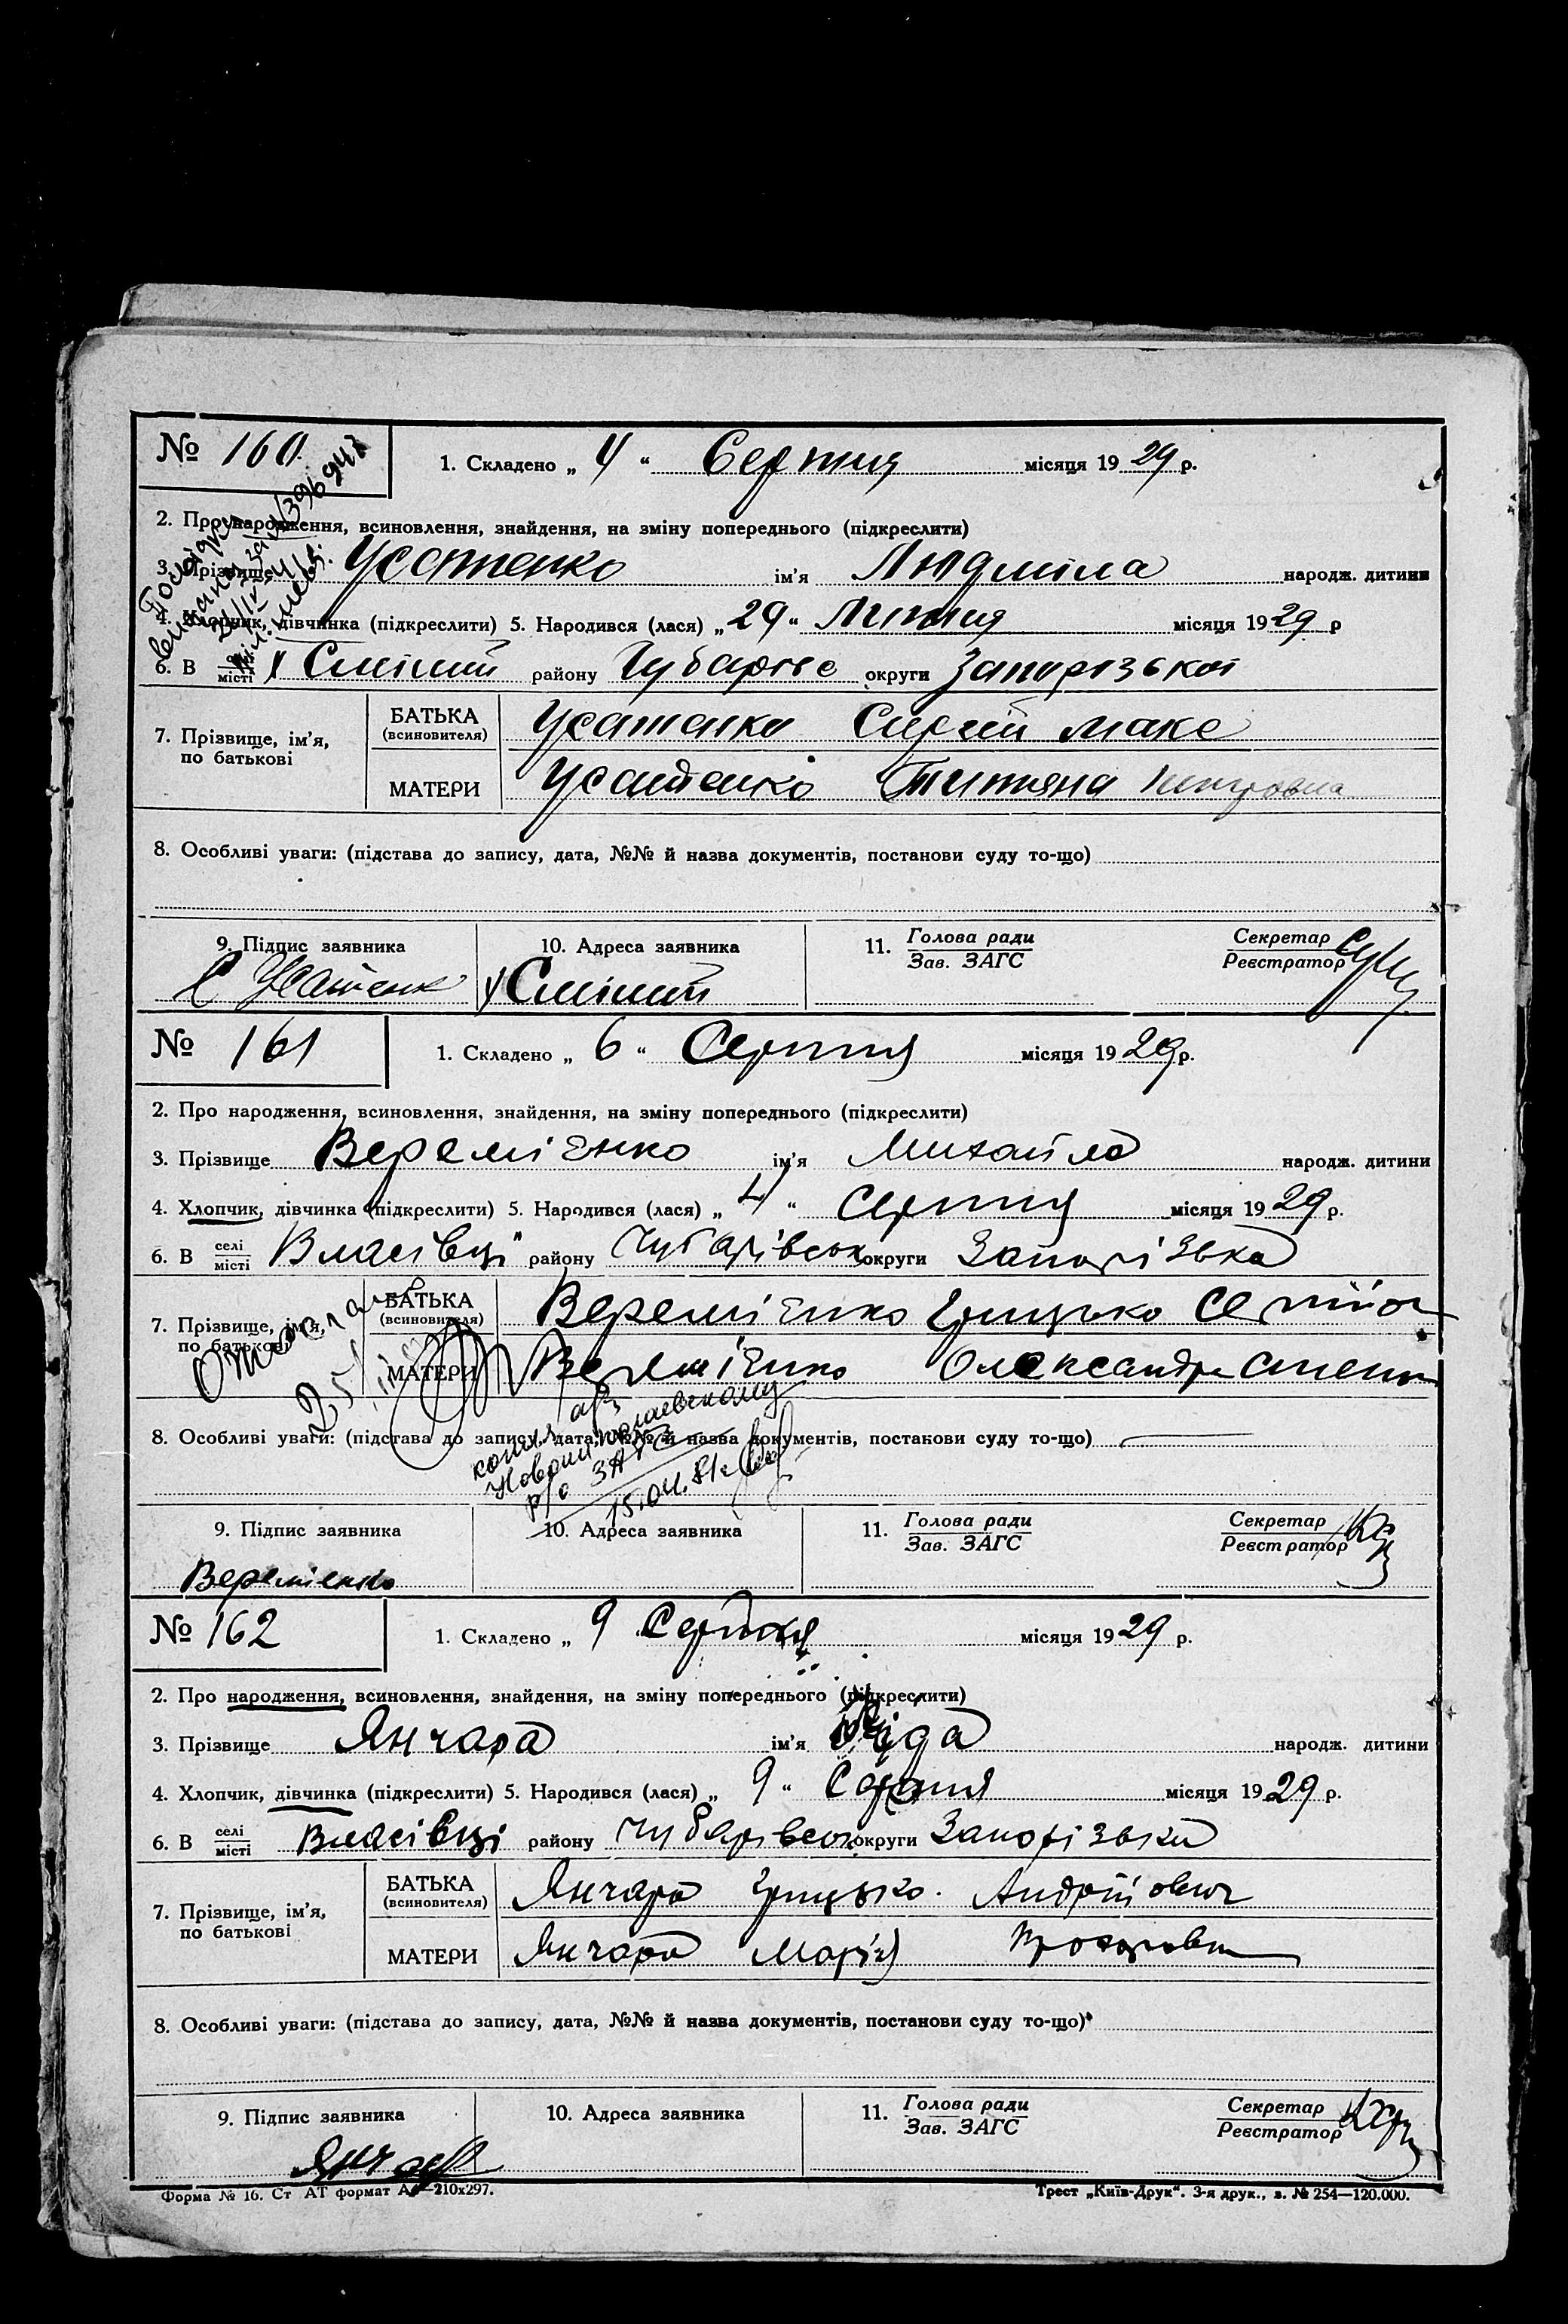 № 160.
1. Складено „ 4 “ Серпня місяця 19 29 р.
2. Про народження, всиновлення, знайдення, на зміну попереднього (підкреслити)
3. Прізвище Усатенко ім'я Людміла народж. дитини
4. Хлопчик, дівчинка (підкреслити) 5. Народився (лася) „ 29 “ Липня місяця 19 29 р
6. В селі місті району Чубарівс округи Запорізької
7. Прізвище, ім'я, по батькові
БАТЬКА (всиновителя) Усатенко Сиргій Макс
МАТЕРИ Усатенко Титяна Петровна
8. Особливі уваги: (підстава до запису, дата, №№ й назва документів, постанови суду то-що)
9. Підпис заявника 10. Адреса заявника 11. Голова ради Зав. ЗАГС Секретар Реєстратор
С Усатенк
№ 161
1. Складено „ 6 “ Серпня місяця 19 29 р.
2. Про народження, всиновлення, знайдення, на зміну попереднього (підкреслити)
3. Прізвище Веремієнко ім'я Михайло народж. дитини
4. Хлопчик, дівчинка (підкреслити) 5. Народився (лася) „ 4 “ Серпня місяця 19 29 р.
6. В селі місті Власівці району Чубарівськ округи Запорізька
7. Прізвище, ім'я, по батькові
БАТЬКА (всиновителя) Веремієнко Грицько
МАТЕРИ Веремієнко Олександра
Отослан
копия а/з
р/о ЗАГС
15.04.81г
8. Особливі уваги: (підстава до запису, дата, №№ й назва документів, постанови суду то-що)
9. Підпис заявника 10. Адреса заявника 11. Голова ради Зав. ЗАГС Секретар Реєстратор
Веремієнко
№ 162
1. Складено „ 9 Серпня місяця 19 29 р.
2. Про народження, всиновлення, знайдення, на зміну попереднього (підкреслити)
3. Прізвище Янчара ім'я народж. дитини
4. Хлопчик, дівчинка (підкреслити) 5. Народився (лася) „ 9 “ Серпня місяця 19 29 р.
6. В селі місті Власівці району Чубарівськ округи Запорізька
7. Прізвище, ім'я, по батькові
БАТЬКА (всиновителя) Янчара Грицько. Андрійович
МАТЕРИ Янчара Марія
8. Особливі уваги: (підстава до запису, дата, №№ й назва документів, постанови суду то-що)
9. Підпис заявника 10. Адреса заявника 11. Голова ради Зав. ЗАГС Секретар Реєстратор
Янчара
Форма № 16. Ст АТ формат А4—210х297.
Трест „Київ-Друк“. 3-я друк., з. № 254—120.000.